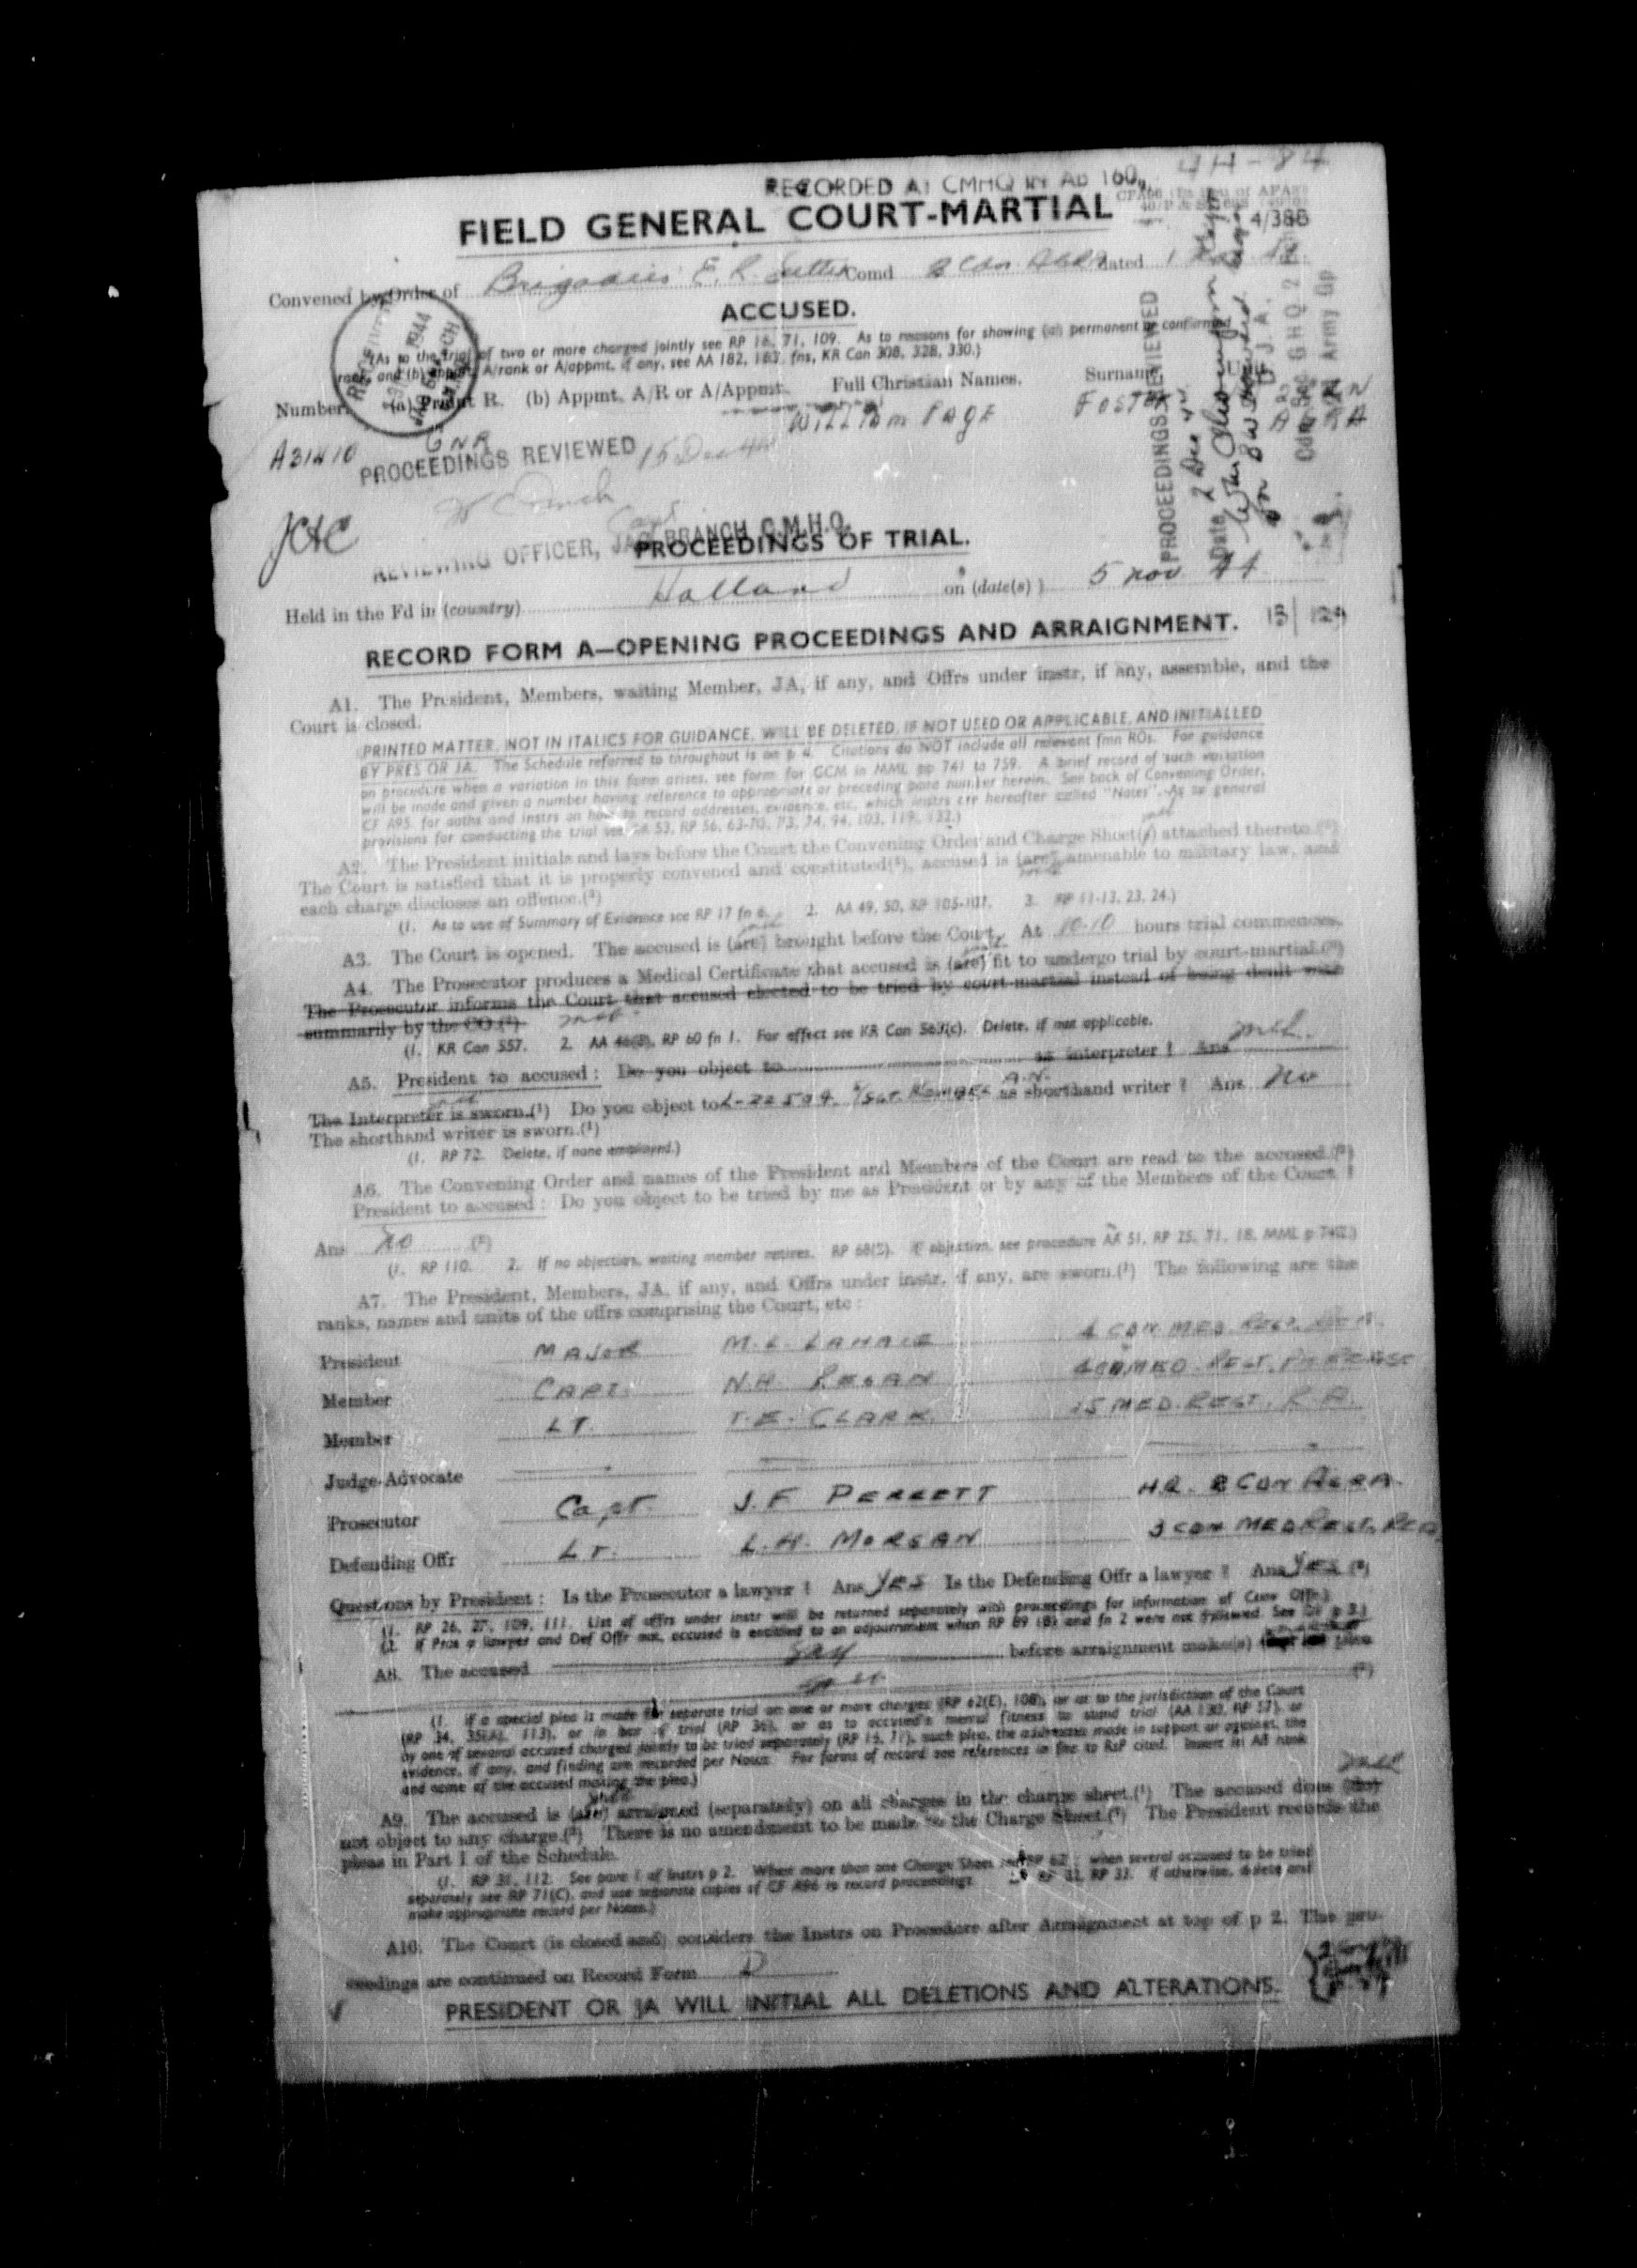 4H-84
RECORDED AT CMHQ IN AB 160
FIELD GENERAL COURT-MARTIAL
4/388
Convened by Order of Brigadier E. R. Comd 2 Cdn AGRA dated 1
ACCUSED.
(As to the trial of two or more charged jointly see RP 16, 71, 109. As to reasons for showing (a) permanent or confirmed
rank, and (b) appmt, A/rank or A/appmt, if any, see AA 182, 183, fns, KR Can 308, 328, 330.)
Number. (a) Prmnt R. (b) Appmt. A/R or A/Appmt. Full Christian Names. Surname. Unit
A31410 GNR William Page Foster
PROCEEDINGS REVIEWED 15 Dec 44
REVIEWING OFFICER, JAG BRANCH C.M.H.Q.
PROCEEDINGS REVIEWED
Date 2 Dec 44
PROCEEDINGS OF TRIAL.
Held in the Fd in (country) Holland on (date(s)) 5 Nov 44
RECORD FORM A—OPENING PROCEEDINGS AND ARRAIGNMENT.
A1. The President, Members, waiting Member, JA, if any, and Offrs under instr, if any, assemble, and the
Court is closed.
(PRINTED MATTER, NOT IN ITALICS FOR GUIDANCE, WILL BE DELETED, IF NOT USED OR APPLICABLE, AND INITIALLED
BY PRES OR JA. The Schedule referred to throughout is on p 4. Citations do NOT include all relevant fmn ROs. For guidance
on procedure when a variation in this form arises, see form for GCM in MML pp 741 to 759. A brief record of such variation
will be made and given a number having reference to appropriate or preceding para number herein. See back of Convening Order,
CF A95, for oaths and instrs on how to record addresses, evidence, etc, which instrs are hereafter called "Notes". As to general
provisions for conducting the trial see AA 53, RP 56, 63-70, 73, 74, 94, 103, 119, 132.)
A2. The President initials and lays before the Court the Convening Order and Charge Sheet(s) attached thereto.(1)
The Court is satisfied that it is properly convened and constituted(2), accused is (are) amenable to military law, and
each charge discloses an offence.(3)
(1. As to use of Summary of Evidence see RP 17 fn 6. 2. AA 49, 50, RP 105-107. 3. RP 11-13, 23, 24.)
A3. The Court is opened. The accused is (are) brought before the Court. At 10.10 hours trial commences.
A4. The Prosecutor produces a Medical Certificate that accused is (are) fit to undergo trial by court-martial.(1)
The Prosecutor informs the Court that accused elected to be tried by court-martial instead of being dealt with
summarily by the CO.(2)
(1. KR Can 557. 2. AA 46(8), RP 60 fn 1. For effect see KR Can 563(c). Delete, if not applicable.
A5. President to accused: Do you object to as interpreter? Ans
The Interpreter is sworn.(1) Do you object to as shorthand writer? Ans No
The shorthand writer is sworn.(1)
(1. RP 72. Delete, if none employed.)
A6. The Convening Order and names of the President and Members of the Court are read to the accused.(1)
President to accused: Do you object to be tried by me as President or by any of the Members of the Court?
Ans No (2)
(1. RP 110. 2. If no objection, waiting member retires. RP 68(2). If objection, see procedure AA 51, RP 25, 71, 18, MML p 742.)
A7. The President, Members, JA, if any, and Offrs under instr, if any, are sworn.(1) The following are the
ranks, names and units of the offrs comprising the Court, etc:
President MAJOR M.L. LAHAIE 4 CDN MED. REGT. RCA.
Member CAPT. N.H. REGAN
Member LT. T.E. CLARK 15 MED. REGT. R.A.
Judge-Advocate
Prosecutor Capt. J.F PERRETT H.Q. 2 CDN AGRA.
Defending Offr LT. L.H. MORGAN 3 CDN MED REGT. RCA
Questions by President: Is the Prosecutor a lawyer? Ans YES Is the Defending Offr a lawyer? Ans YES (2)
(1. RP 26, 27, 109, 111. List of offrs under instr will be returned separately with proceedings for information of Conv Offr.)
(2. If Pros a lawyer and Def Offr not, accused is entitled to an adjournment when RP 89 (B) and fn 2 were not followed. See p 3.)
A8. The accused before arraignment make(s) plea
(1. If a special plea is made for separate trial on one or more charges (RP 62(E), 108), or as to the jurisdiction of the Court
(RP 34, 35(A), 113), or in bar of trial (RP 36), or as to accused's mental fitness to stand trial (AA 130, RP 57), or
by one of several accused charged jointly to be tried separately (RP 15, 71), such plea, the addresses made in support or against, the
evidence, if any, and finding are recorded per Notes. For forms of record see references in fns to RsP cited. Insert in A8 rank
and name of the accused making the plea.)
A9. The accused is (are) arraigned (separately) on all charges in the charge sheet.(1) The accused does (do)
not object to any charge.(2) There is no amendment to be made to the Charge Sheet.(3) The President records the
pleas in Part I of the Schedule.
(1. RP 31, 112. See para 1 of Instrs p 2. When more than one Charge Sheet, see RP 62; when several accused to be tried
separately see RP 71(C), and use separate copies of CF A96 to record proceedings. RP 32, RP 33. If otherwise, delete and
make appropriate record per Notes.)
A10. The Court (is closed and) considers the Instrs on Procedure after Arraignment at top of p 2. The pro-
ceedings are continued on Record Form D
PRESIDENT OR JA WILL INITIAL ALL DELETIONS AND ALTERATIONS.